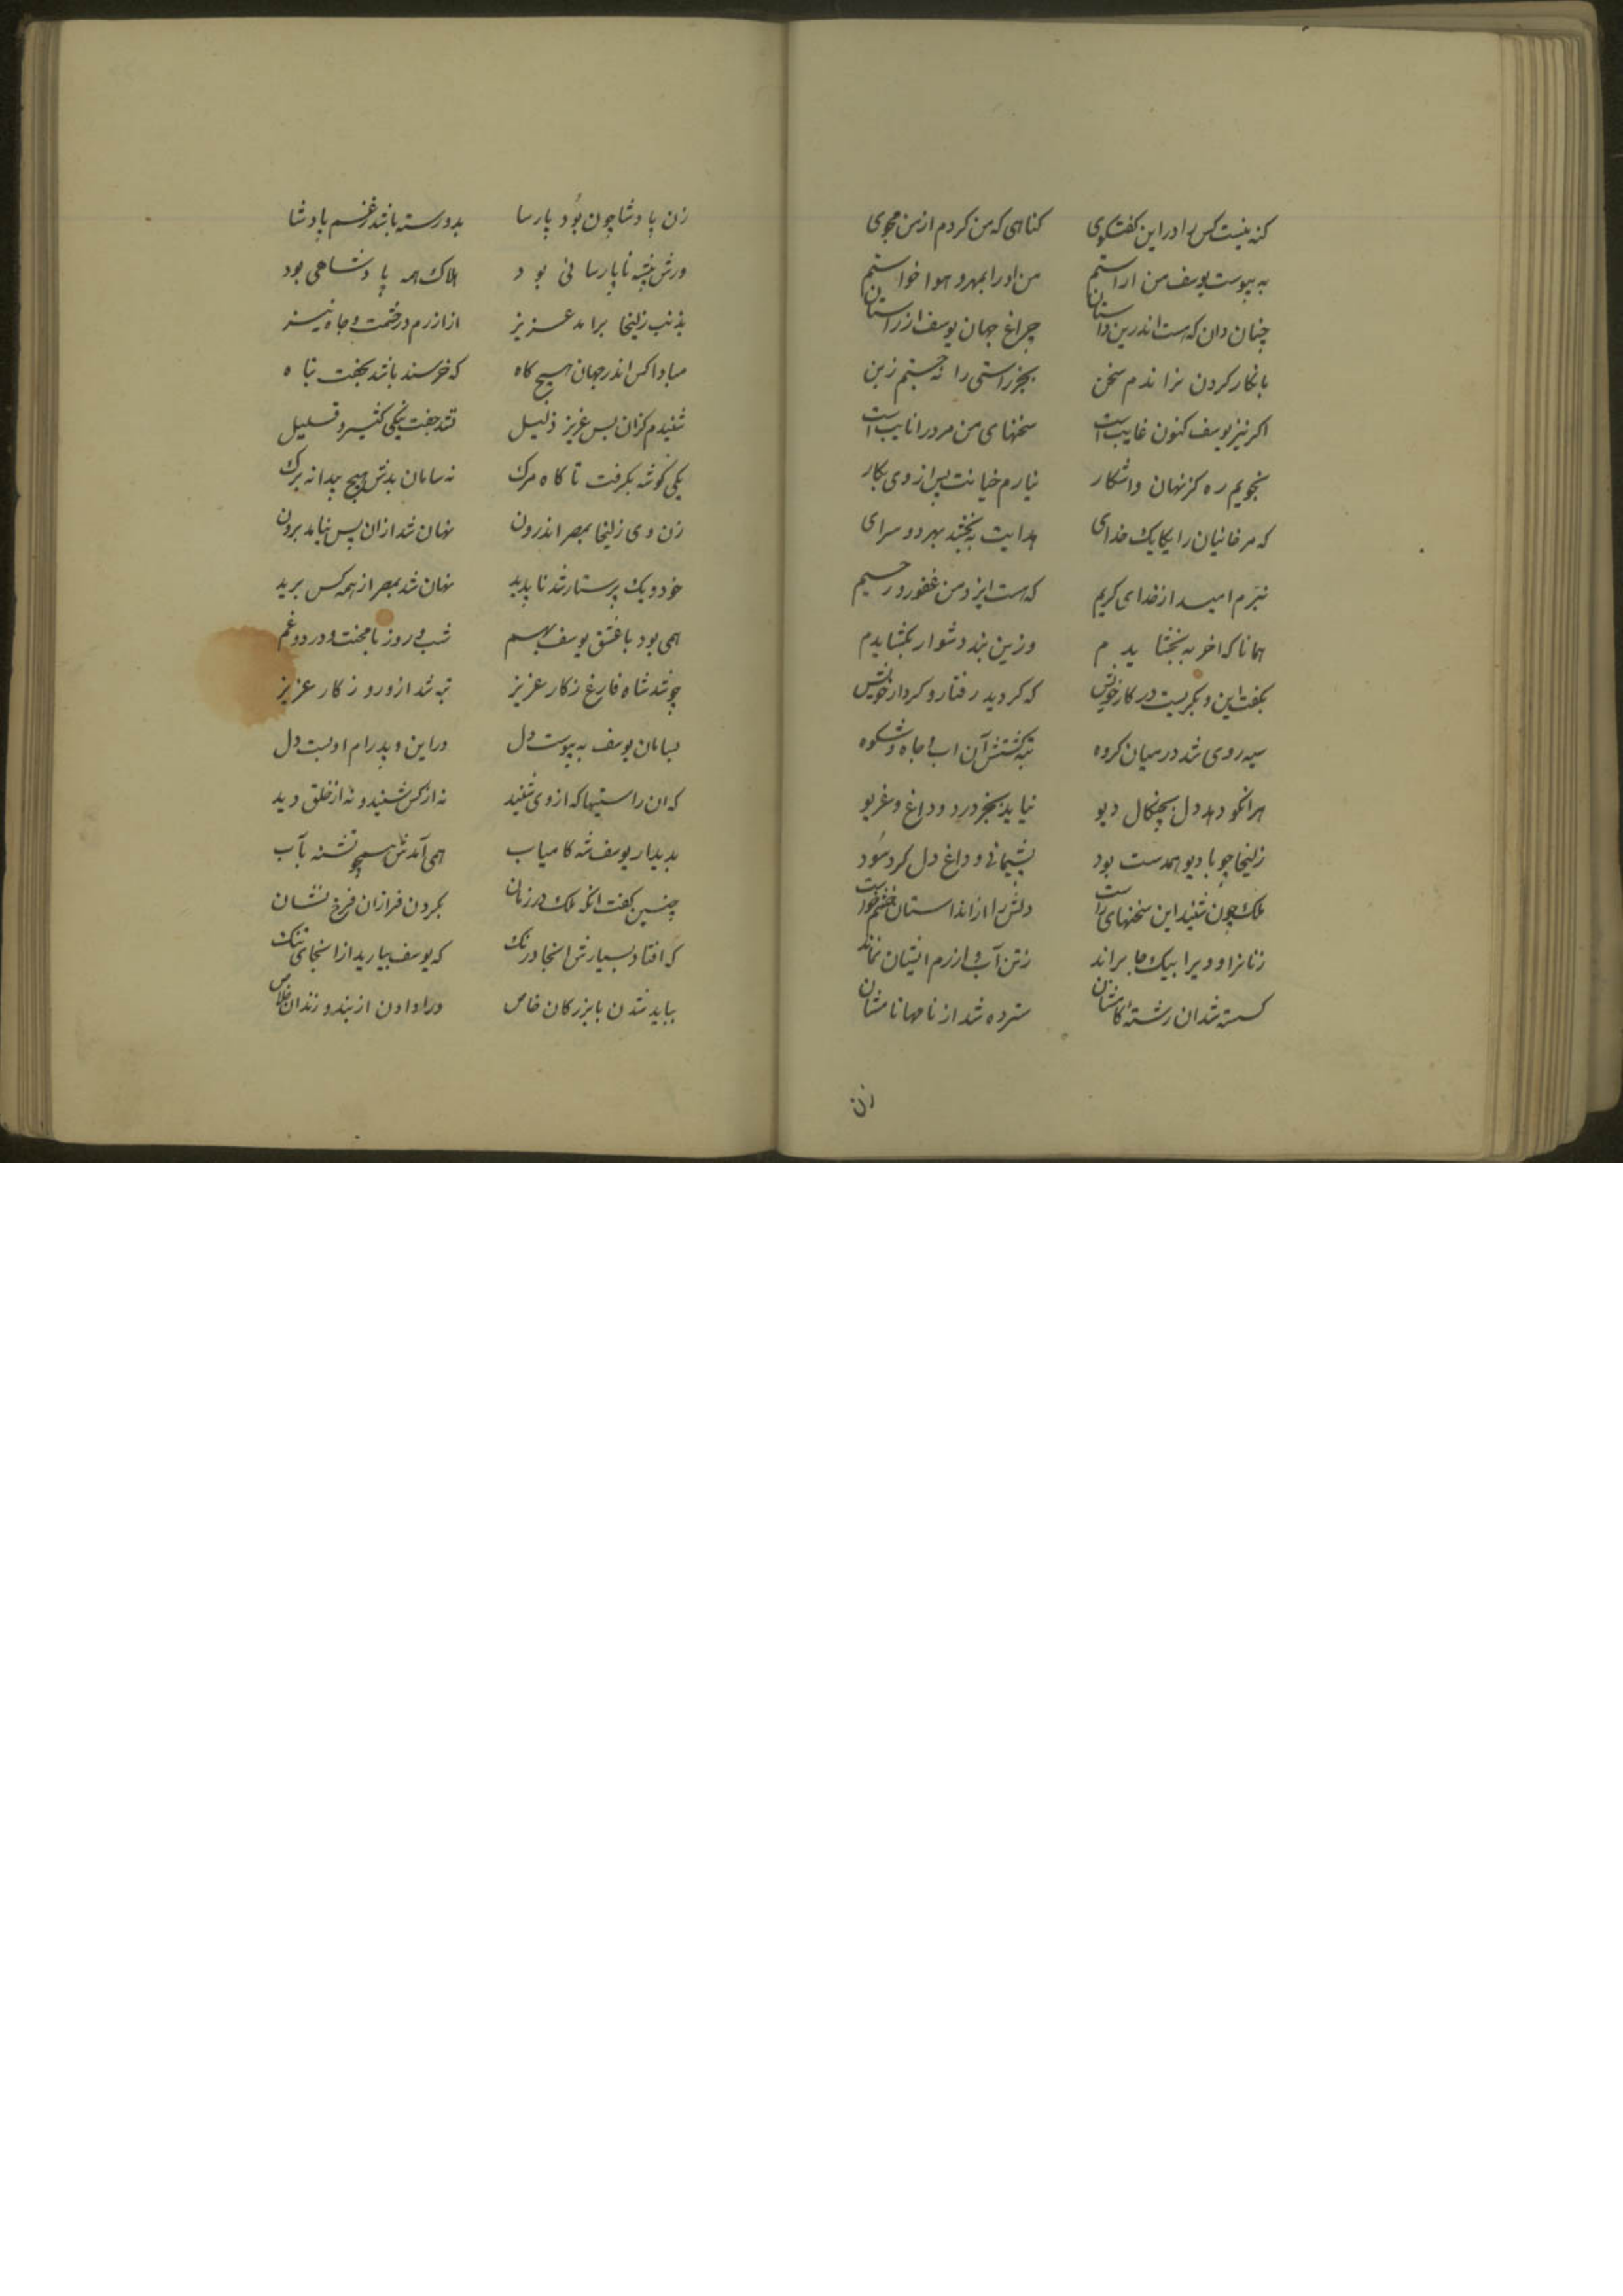 کنه نیست کس را در این کفتکوی کناهی که من کردم از من مجوی
به پیوست یوسف من اراستم من او را بمهر و هوا خواستم
چنان دان که هست اندرین داستان چراغ جهان یوسف از راستان
بانکار کردن نراندم سخن بجز راستی را نه جستم زبن
اکر نیز یوسف کنون غایب است سخنهای من مرورا نایب است
نجویم ره کژ نهان واشکار نیارم خیانت پس از وی بکار
که مر خائنیان را یکایک خدای هدایت به نخشد بهر دو سرای
نبرم امید از خدای کریم که هست ایزد من غفور و رحیم
همانا که اخر به بخشایدم وزین بند دشوار بکشایدم
بکفت این و بکریست در کار خویش که کردید رفتار و کردار خویش
سیه روی شد در میان کروه تبه کشتش آن اب و جاه و شکوه
هر انکو دهد دل بچنکال دیو نیاید بجز درد و داغ و غریو
زلیخا چو با دیو همدست بود پشیمانی و داغ دل کرد سود
ملک چون شنید این سخنهای راست دلش را از انداستان خشم خواست
زنانرا و ویرا بیک جا براند زتن آب و ازرم ایشان نماند
کسسته شد ان رشتهٔ کامشان سترده شد از نامها نامشان
زن
زن پادشا چون بُود پارسا بدو رسته باشد ز غم پادشا
ورش پیشه ناپارسائی بود هلاک همه پادشاهی بود
بذنب زلیخا برامد عزیز از ازرم و درحشمت و جاه نیز
مبادا کس اندر جهان هیچ کاه که خرسند باشد بجفت تباه
شنیدم کزان پس عزیز ذلیل شد جفت نیکی کثیر و قلیل
یکی کوشه بکرفت تا کاه مرک نه سامان بدش هیچ پیدا نه برک
زن وی زلیخا بمصر اندرون نهان شد ازان پس نیامد برون
خود و یک پرستار شد ناپدید نهان شد بمصر از همه کس برید
همی بود با عشق یوسف بهم شب و روز با محنت و درد و غم
چو شد شاه فارغ ز کار عزیز تبه شد ازو روزکار عزیز
بسامان یوسف به پیوست دل در این و پدرام او بست دل
که ان راستیها که از وی شنید نه از کس شنید و نه از خلق دید
بدیدار یوسف شه کامیاب همی آمدش همچو تشنه بآب
چنین کفت انکه ملک در زمان بکردن فرازان فرخ نشان
که افتاد بسیارش انجا درنک که یوسف بیارید از انجای تنک
بباید شدن با بزرکان خاص ورا دادن از بند و زندان خلاص